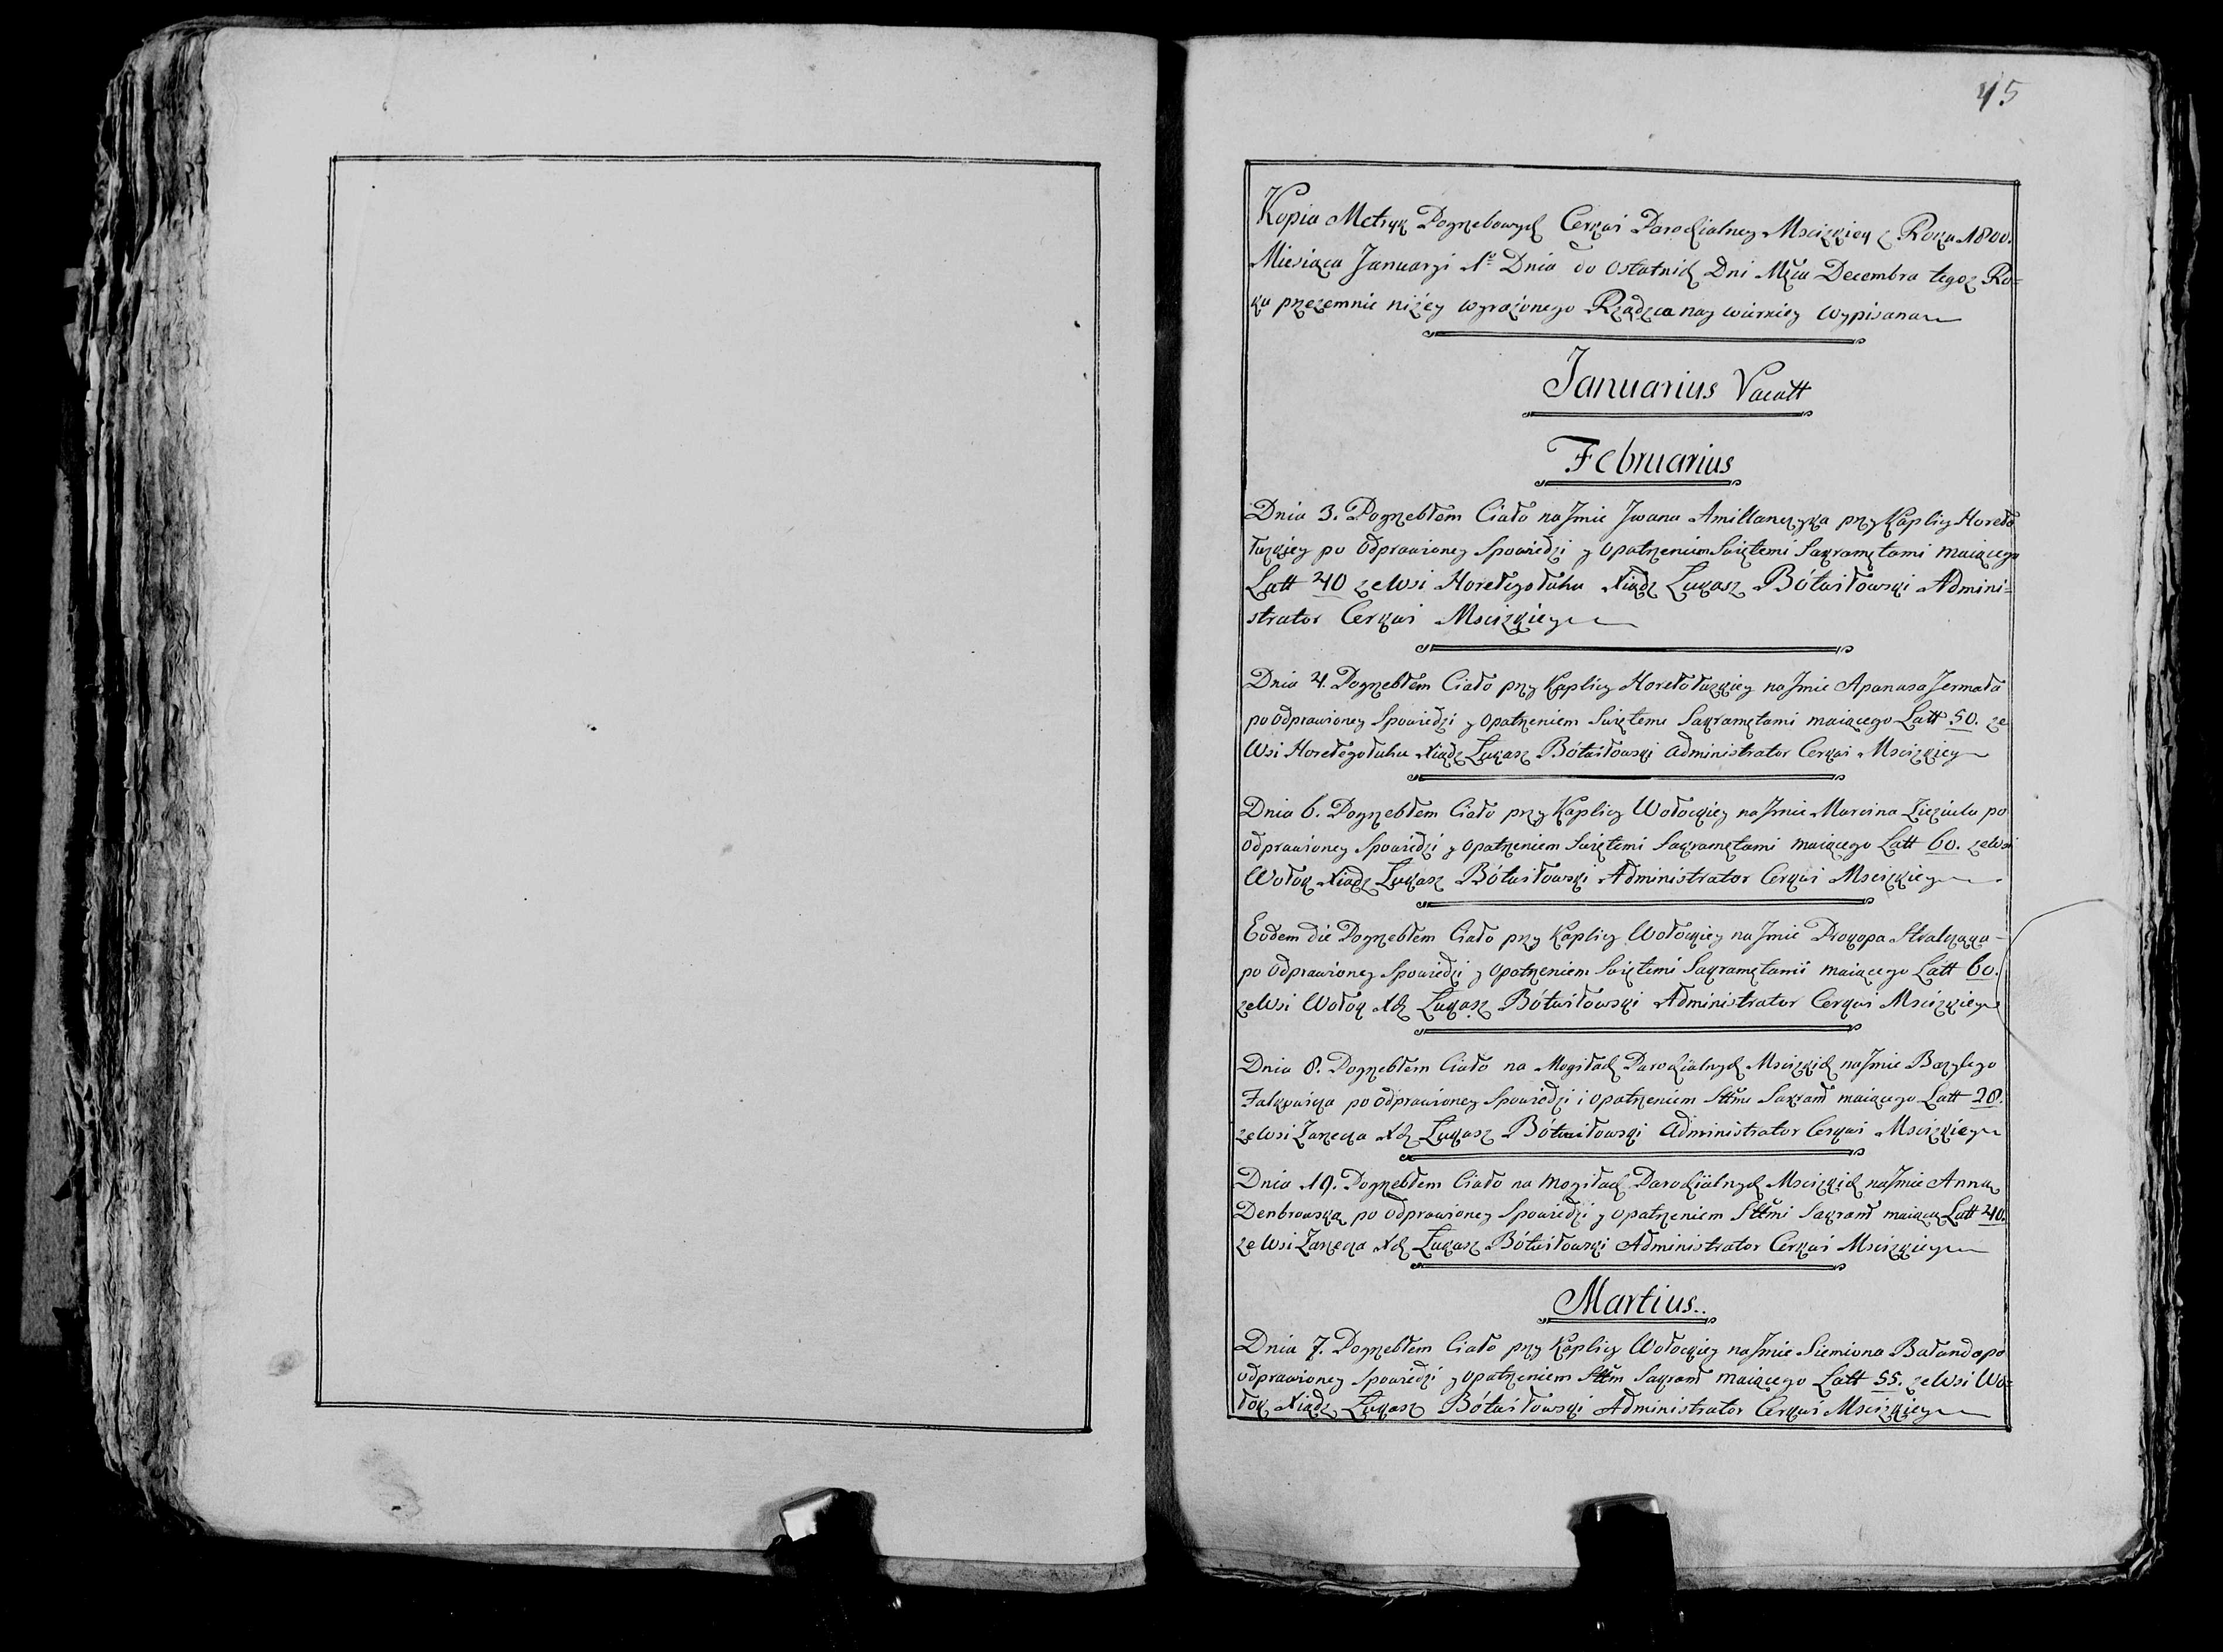 45
Kopia Metryk Pogrzebowych Cerkwi Parochialney Mscizkiey z Roku 1800.
Miesiąca Januaryi 1º Dnia do ostatnich Dni Mca Decembra tegoz Ro=
ku przezemnie niżey wyrażonego Rządzca nay wierniey wypisana
Januarius Vacatt
Februarius
Dnia 3. Pogrzebłem Ciało na Jmie Jwana Amillanczyka przy Kaplicy Horeło
łuzkiey po odprawioney Spowiedzi y opatrzeniem Swiętemi Sakramętami maiącego
Latt 40 ze Wsi Horełegołuhu Xiądz Łukasz Bótwiłowski Admini=
strator Cerkwi Mscizkiey
Dnia 4. Pogrzebłem Ciało przy Kaplicy Horełołuzkiey na Jmie Apanasa Jermała
po odprawioney Spowiedzi y opatrzeniem Swiętemi Sakramętami maiącego Latt 50. ze
Wsi Horełegołuhu Xiądz Łukasz Bótwiłowski Administrator Cerkwi Mscizkiey
Dnia 6. Pogrzebłem Ciało przy Kaplicy Wołockiey na Jmie Marcina Zieziula po
odprawioney Spowiedzi y opatrzeniem Swiętemi Sakramętami maiącego Latt 60. ze Wsi
Wołok Xiądz Łukasz Bótwiłowski Administrator Cerkwi Mscizkiey
Eodem die Pogrzebłem Ciało przy Kaplicy Wołockiey na Jmie Prokopa
po odprawioney Spowiedzi y opatrzeniem Swiętemi Sakramętami maiącego Latt 60.
ze Wsi Wołok Xdz Łukasz Bótwiłowski Administrator Cerkwi Mscizkiey
Dnia 8. Pogrzebłem Ciało na Mogiłach Parochialnych Mscizkich na Jmie Bazylego
Falkowicza po odprawioney Spowiedzi i opatrzeniem Sttmi Sakram maiącego Latt 28.
ze Wsi Zarzecza Xdz Łukasz Bótwiłowski Administrator Cerkwi Mscizkiey
Dnia 19. Pogrzebłem Ciało na mogiłach Parochialnych Mscizkich na Jmie Annę
Denbrowską po odprawioney Spowiedzi y opatrzeniem Sttmi Sakram maiącą Latt 40.
ze Wsi Zarzecza Xdz Łukasz Bótwiłowski Administrator Cerkwi Mscizkiey
Martius..
Dnia 7. Pogrzebłem Ciało przy Kaplicy Wołockiey na Jmie Siemiona Bałanda po
odprawioney Spowiedzi y opatrzeniem Sttm Sakram maiącego Latt 55. ze Wsi Wo=
łok Xiądz Łukasz Bótwiłowski Administrator Cerkwi Mscizkiey